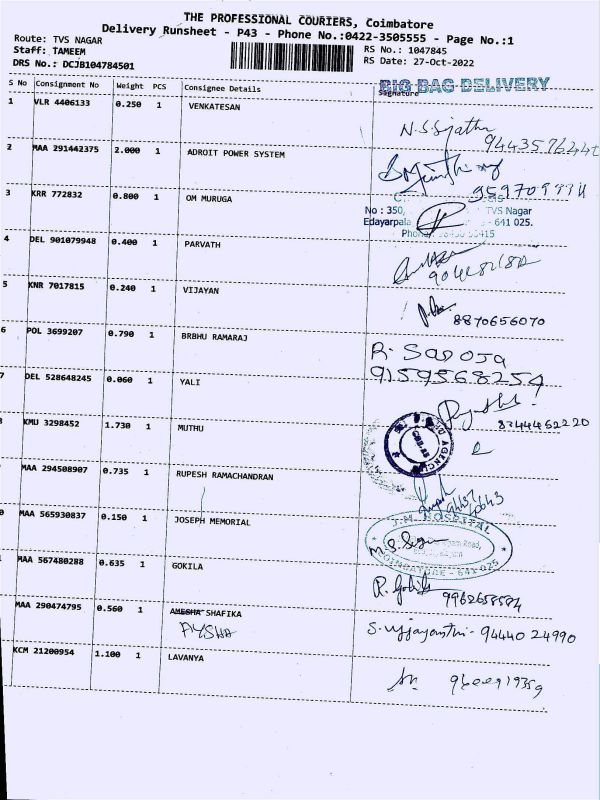 THE PROFESSIONAL COURIERS, Coimbatore
Delivery Runsheet - P43 - Phone No.:0422-3505555 - Page No.:1
Route: TVS NAGAR
RS No.: 1047845
Staff: TAMEEM
RS Date: 27-Oct-2022
DRS No.: DCJB104784501
S No Consignment No Weight PCS Consignee Details Signature
BIG BAG DELIVERY
1 VLR 4406133 0.250 1 VENKATESAN
N.S.Sjatha
2 MAA 291442375 2.000 1 ADROIT POWER SYSTEM
3 KRR 772832 0.800 1 OM MURUGA
No : 350, TVS Nagar
Edayarpala - 641 025.
4 DEL 901079948 0.400 1 PARVATH
5 KNR 7017815 0.240 1 VIJAYAN
8870656070
6 POL 3699207 0.790 1 BRBHU RAMARAJ
R. SAROJA
9159568254
7 DEL 528648245 0.060 1 YALI
8344462220
KMU 3298452 1.730 1 MUTHU
MAA 294508907 0.735 1 RUPESH RAMACHANDRAN
MAA 565930837 0.150 1 JOSEPH MEMORIAL
J.M. HOSPITAL
COIMBATORE - 641 025
MAA 567480288 0.635 1 GOKILA
R. Gokila
MAA 290474795 0.560 1 AMESHA SHAFIKA
AYSHA
S. Vijayanthi - 94440 24990
KCM 21200954 1.100 1 LAVANYA